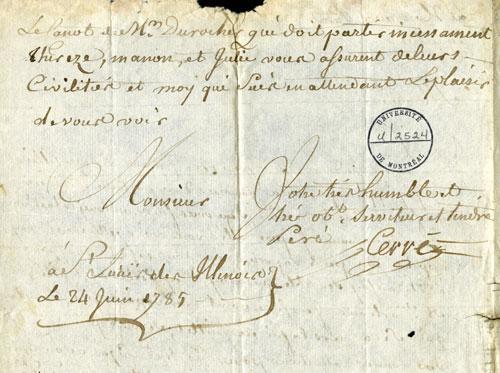 Le Canot de Mr. Durocher qué doit partir incensament
thereze, manon, et Julie vous assurent de leurs
Civilités et moy qui suis en attendant Le plaisir
de vous voir
UNIVERSITÉ
U/2524
DE MONTRÉAL
Monsieur
Votre trés humble et
tré obt. Serviteur et tendre
Peré
Cerré
à St. Louis des Illinois
Le 24 Juin 1785